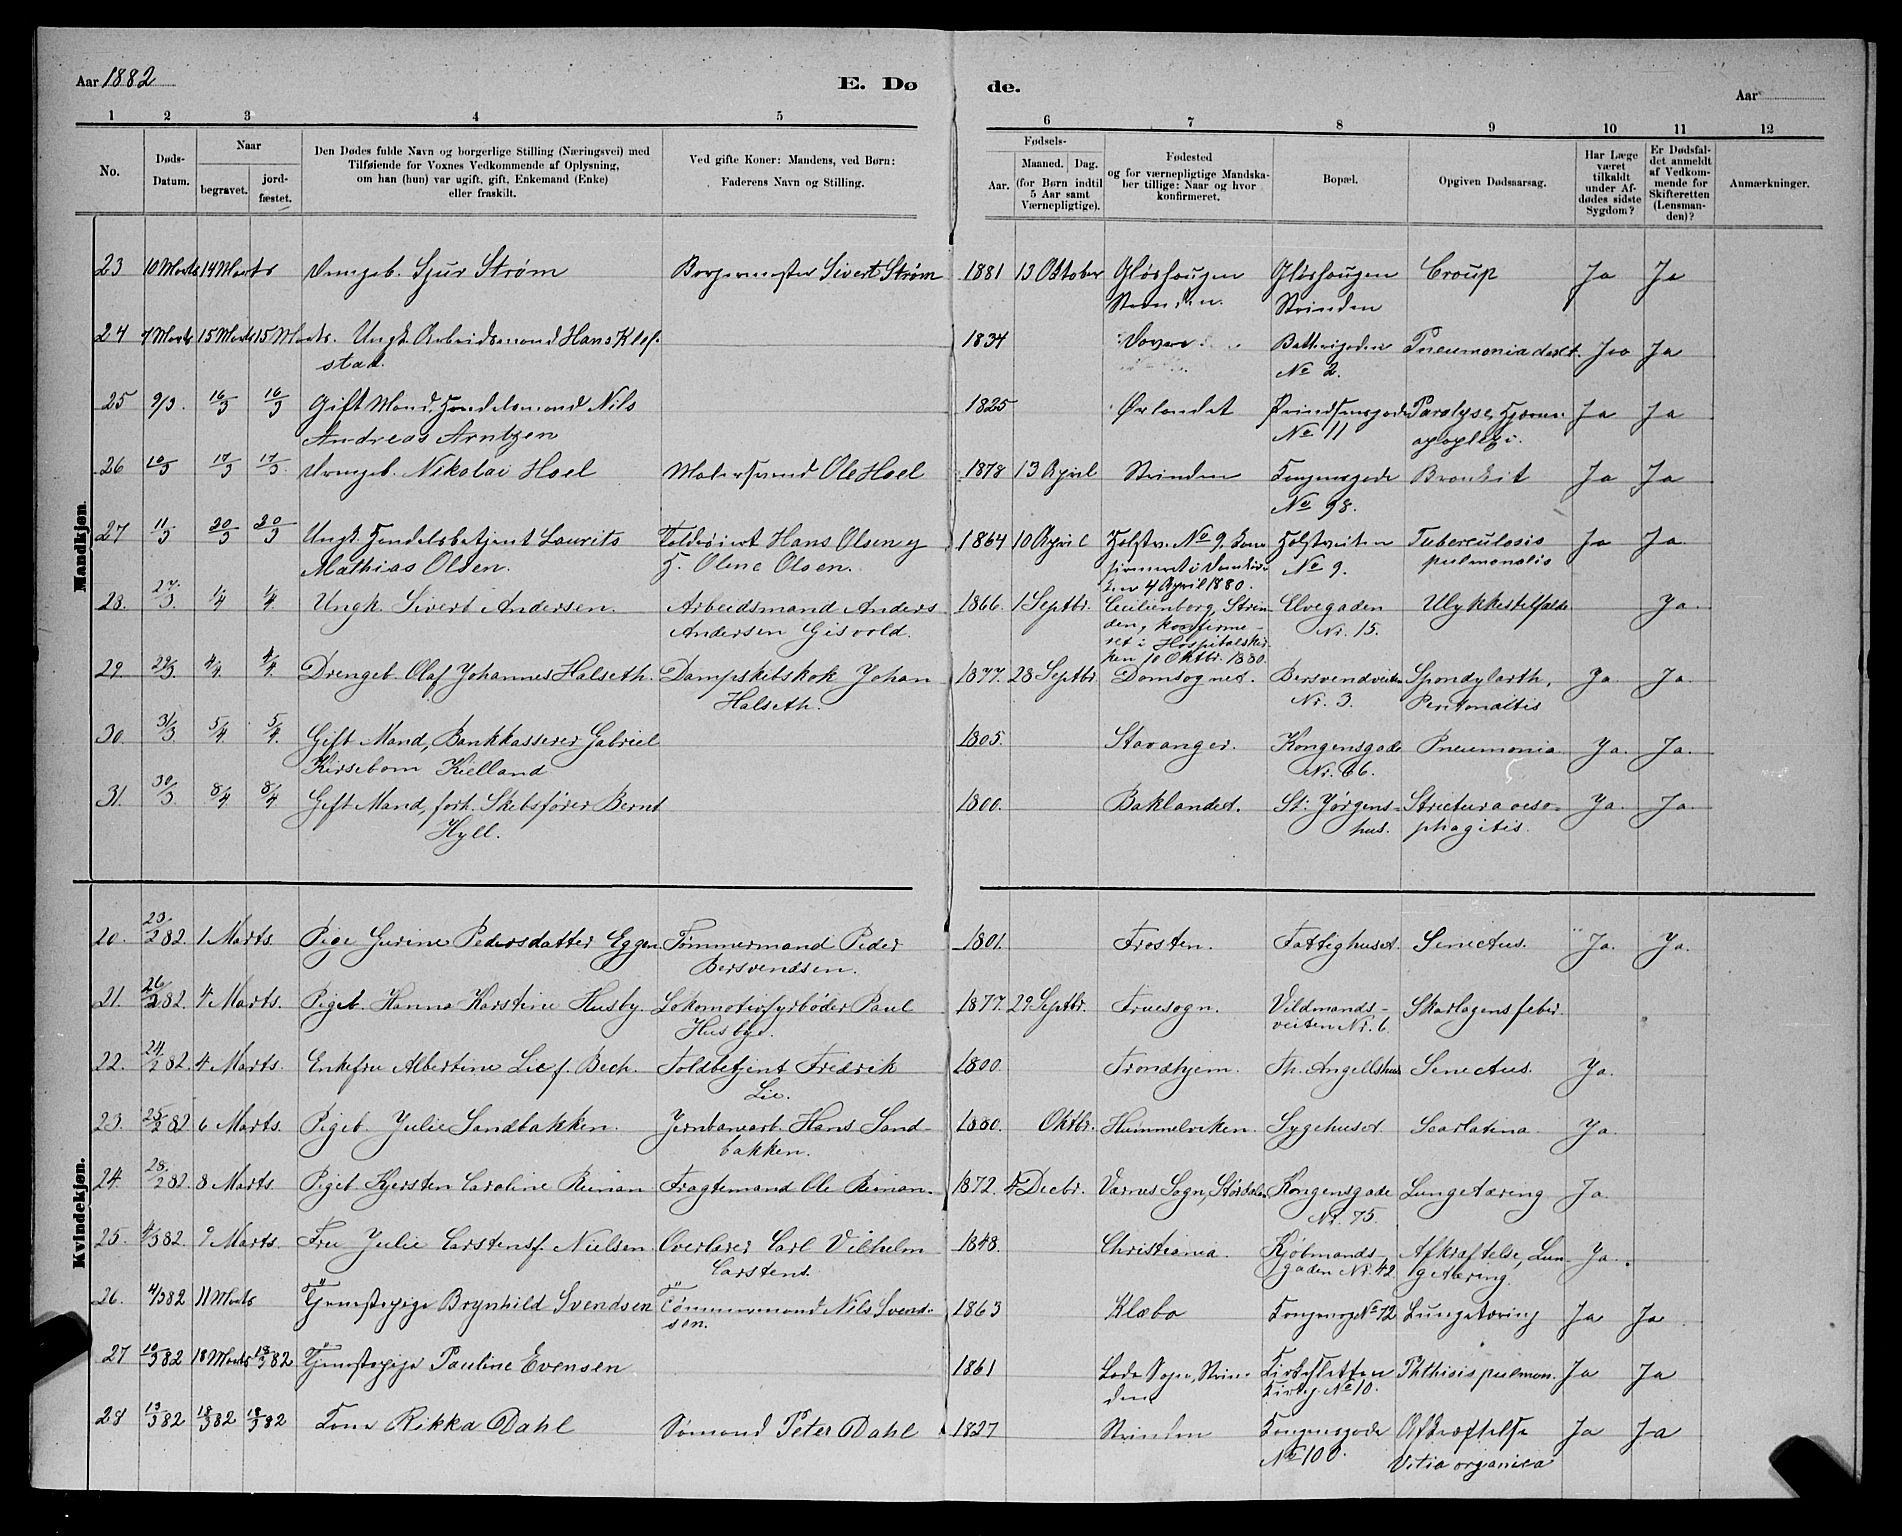 Aar 1882
E. Dø de.
Aar
1 2 3 4 5 6 7 8 9 10 11 12
No.
Døds-Datum.
Naar
begravet.
jord-fæstet.
Den Dødes fulde Navn og borgerlige Stilling (Næringsvei) med
Tilføiende for Voxnes Vedkommende af Oplysning,
om han (hun) var ugift, gift, Enkemand (Enke)
eller fraskilt.
Ved gifte Koner: Mandens, ved Børn:
Faderens Navn og Stilling.
Fødsels-
Aar.
Maaned. Dag.
(for Børn indtil
5 Aar samt
Værnepligtige).
Fødested
og for værnepligtige Mandska-
ber tillige: Naar og hvor
konfirmeret.
Bopæl.
Opgiven Dødsaarsag.
Har Læge
været
tilkaldt
under Af-
dødes sidste
Sygdom?
Er Dødsfal-
det anmeldt
af Vedkom-
mende for
Skifteretten
(Lensman-
den)?
Anmærkninger.
Mandkjøn.
23 10 Marts 14 Marts Drengeb. Sjur Strøm Borgermester Sivert Strøm 1881 13 Oktober Gløshaugen Gløshaugen Croup Ja Ja
Strinden. Strinden
24 7 Marts 15 Marts 15 Marts. Ungk. Arbeidsmand Hans Klef- 1834 Dovre Batterigaden Pneumonia dext. Jaa Ja
stad. No 2.
25 9/3. 16/3 16/3 Gift Mand. Handelsmand Nils 1825 Ørlandet Prindsensgade Paralyse, Hjerne- Ja Ja
Andreas Arntzen No 11 apoplexi.
26 10/3 17/3 17/3. Drengeb. Nikolai Hoel Malersvend Ole Hoel 1878 13 April Strinden Kongensgade Bronkit Ja Ja
No 98.
27 11/3 20/3 20/3 Ungk. Handelsbetjent Laurits Toldrorert Hans Olsen og 1864 10 April Holstv. No 9, kon- Holstveiten Tuberculosis Ja Ja
Mathias Olsen. H. Olene Olsen. firmeret i Domkir- No 9. pulmonalis
ken 4 April 1880.
28. 27/3. 1/4 1/4. Ungk. Sivert Andersen. Arbeidsmand Anders 1866. 1 Septbr. Cecilienborg, Strin- Elvegaden Ulykkestilfælde Ja.
Andersen Gisvold. den, konfirme- Nr. 15.
ret i Hospitalskir-
ken 10 Oktbr. 1880.
29. 29/3. 4/4. 4/4. Drengeb. Olaf Johannes Halseth. Dampskibskok Johan 1877. 28 Septbr. Domsognet. Bersvendveiten Spondylarth, Ja. Ja.
Halseth. Nr. 3. Peritonæitis
30. 31/3. 5/4. 5/4. Gift Mand, Bankkasserer Gabriel 1805. Stavanger. Kongensgade Pneumonia. Ja. Ja.
Kirsebom Kielland Nr. 66.
31. 30/3 8/4 8/4 Gift Mand, forh. Skibsfører Bernt 1800. Baklandet. St: Jørgens- Strictura oeso- Ja. Ja.
Hyll. hus. phagitis.
Kvindekjøn.
20. 23/2 82. 1 Marts. Pige Gurine Pedersdatter Eggen. Tømmermand Peder 1801. Frosten. Fattighuset. Senectus. Ja. Ja.
Bersvendsen.
21. 26/2 82. 4 Marts. Pigeb. Hanna Karstine Husby. Lokomotivfyrbøder Paul 1877. 29 Septbr. Fruesogn. Vildmands- Skarlagensfeber.
Husbye. veiten Nr. 6.
22. 24/2 82. 4 Marts. Enkefru Albertine Lie f. Bech. Toldbetjent Fredrik 1800. Trondhjem. Th. Angellshus Senectus. Ja.
Lie.
23. 25/2 82 6 Marts. Pigeb. Julie Sandbakken. Jernbanearb. Hans Sand- 1880. Oktbr. Hummelviken. Sygehuset Scarlatina. Ja.
bakken.
24. 28/2 82. 8 Marts. Pigeb. Kjersten Caroline Reinan Fragtemand Ole Reinan. 1872. 4 Decbr. Værnes Sogn, Stjørdalen Kongensgade Lungetæring Ja.
Nr. 75.
25. 4/3 82. 9 Marts. Fru Julie Carstens f. Nielsen. Overlærer Carl Vilhelm 1848. Christiania. Kjøbmands- Afkræftelse, Lun- Ja.
Carstens. gaden Nr. 42 getæring.
26. 4/3 82 11 Marts Tjenestepige Brynhild Svendsen Tømmermand Nils Svend- 1863 Klæbo Kongensg No 72 Lungetæring Ja Ja
sen.
27 10/3 82 18 Marts 18/3 82 Tjenestepige Pauline Evensen 1861 Lade Sogn, Strin- Phthisis pulmon. Ja Ja
den No 10.
28 13/3 82 18/3 82 18/3 82 Kone Rikka Dahl Sømand Peter Dahl 1827 Strinden Kongensgade Afkræftelse Ja Ja
No 100. Vitia organica